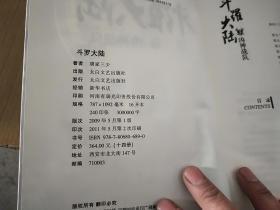 斗罗大陆
著者 唐家三少
出版 太白文艺出版社
发行 太白文艺出版社
经销 新华书店
印刷 河南省瑞光印务股份有限公司
规格 787×1092毫米 16开本
240印张 5000000字
版次 2009年5月第1版
印次 2011年5月第2次印刷
书号 ISBN 978-7-80680-689-0
定价 364.00元(十四册)
地址 西安市北大街147号
邮编 710003
版权所有 翻印必究
斗罗大陆
目录
CONTENTS